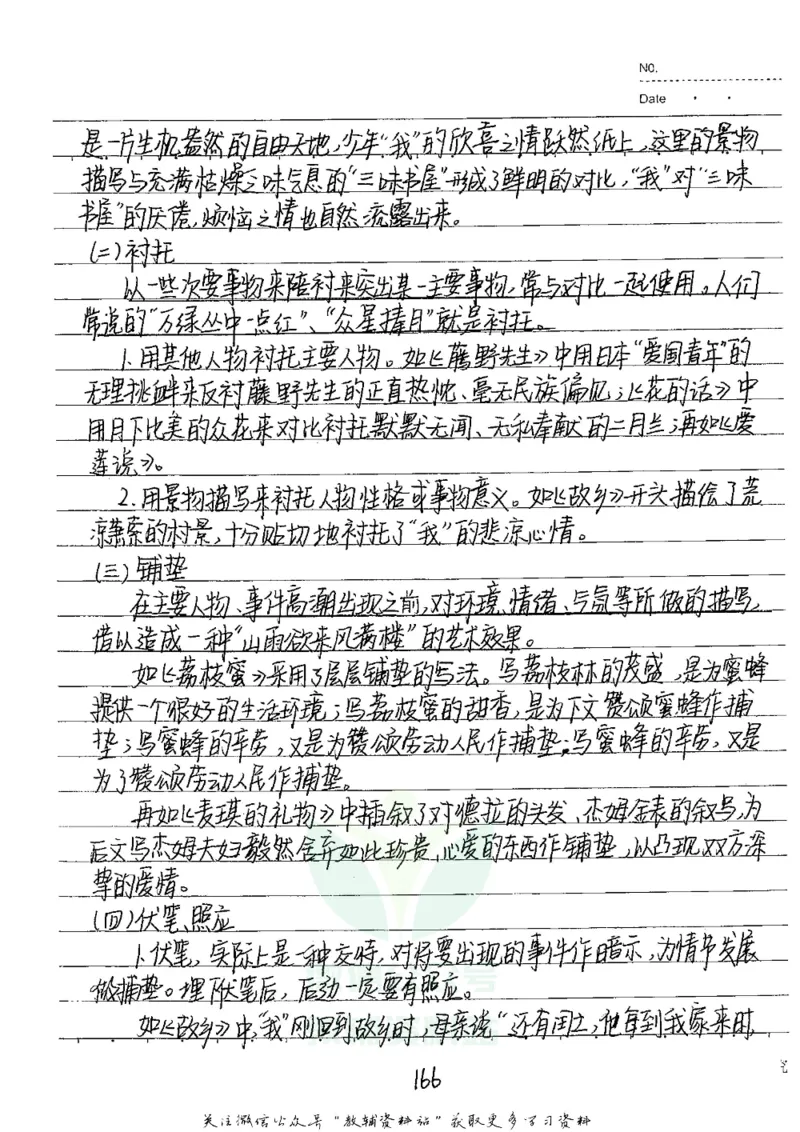 NO.
Date
是一片生机盎然的自由天地,少年“我”的欣喜之情跃然纸上,这里的景物
描写与充满枯燥乏味气息的“三味书屋”形成了鲜明的对比,“我”对“三味
书屋”的厌倦,烦恼之情也自然流露出来。
(二)衬托
以一些次要事物来陪衬来突出某一主要事物,常与对比一起使用。人们
常说的“万绿丛中一点红”、“众星捧月”就是衬托。
1.用其他人物衬托主要人物。如《藤野先生》中用日本“爱国青年”的
无理挑衅来反衬藤野先生的正直热忱、毫无民族偏见;《花的话》中
用月下比美的众花来对比衬托默默无闻、无私奉献的二月兰;再如《爱
莲说》。
2.用景物描写来衬托人物性格或事物意义。如《故乡》开头描绘了荒
凉萧索的村景,十分贴切地衬托了“我”的悲凉心情。
(三)铺垫
在主要人物、事件高潮出现之前,对环境、情绪、气氛等所做的描写,
借以造成一种“山雨欲来风满楼”的艺术效果。
如《荔枝蜜》采用了层层铺垫的写法。写荔枝林的茂盛,是为蜜蜂
提供一个很好的生活环境;写荔枝蜜的甜香,是为下文赞颂蜜蜂作捕
垫;写蜜蜂的辛劳,又是为赞颂劳动人民作捕垫;写蜜蜂的辛劳,又是
为了赞颂劳动人民作捕垫。
再如《麦琪的礼物》中插叙了对德拉的头发、杰姆金表的叙写,为
后文写杰姆夫妇毅然舍弃如此珍贵,心爱的东西作铺垫,以凸现双方深
挚的爱情。
(四)伏笔、照应
1.伏笔,实际上是一种交待,对将要出现的事件作暗示,为情节发展
做捕垫。埋下伏笔后,后边一定要有照应。
如《故乡》中,“我”刚回到故乡时,母亲说“还有闰土,他每到我家来时,
166
关注微信公众号“教辅资料站”获取更多学习资料